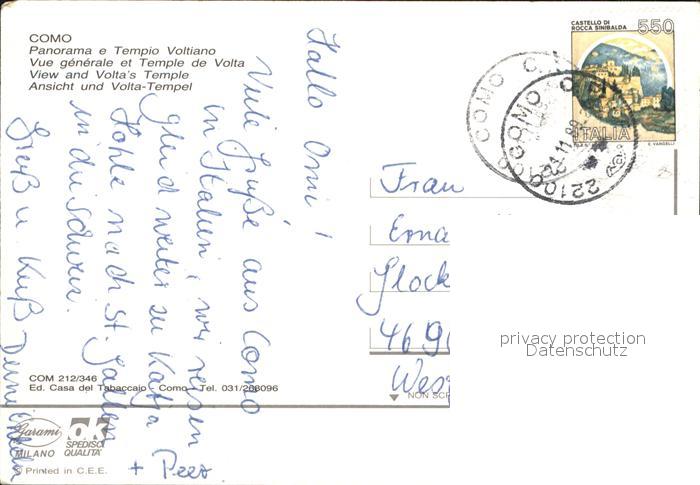 COMO
Panorama e Tempio Voltiano
Vue générale et Temple de Volta
View and Volta's Temple
Ansicht und Volta-Tempel
CASTELLO DI
ROCCA SINIBALDA
550
ITALIA
E. VANGELLI
COMO
COMO
22100
Hallo Omi!
Viele Grüße aus Como
in Italien, wir reisen
gleich weiter zu Katja
nach St. Gallen
in die Schweiz.
Gruß u. Kuß
+ Peer
Frau
Erna
Glock
Wes
privacy protection
Datenschutz
COM 212/346
Ed. Casa del Tabaccaio - Como - Tel. 031/266096
NON SCR
Garami
MILANO
ok
SPEDISCI
QUALITA'
© Printed in C.E.E.